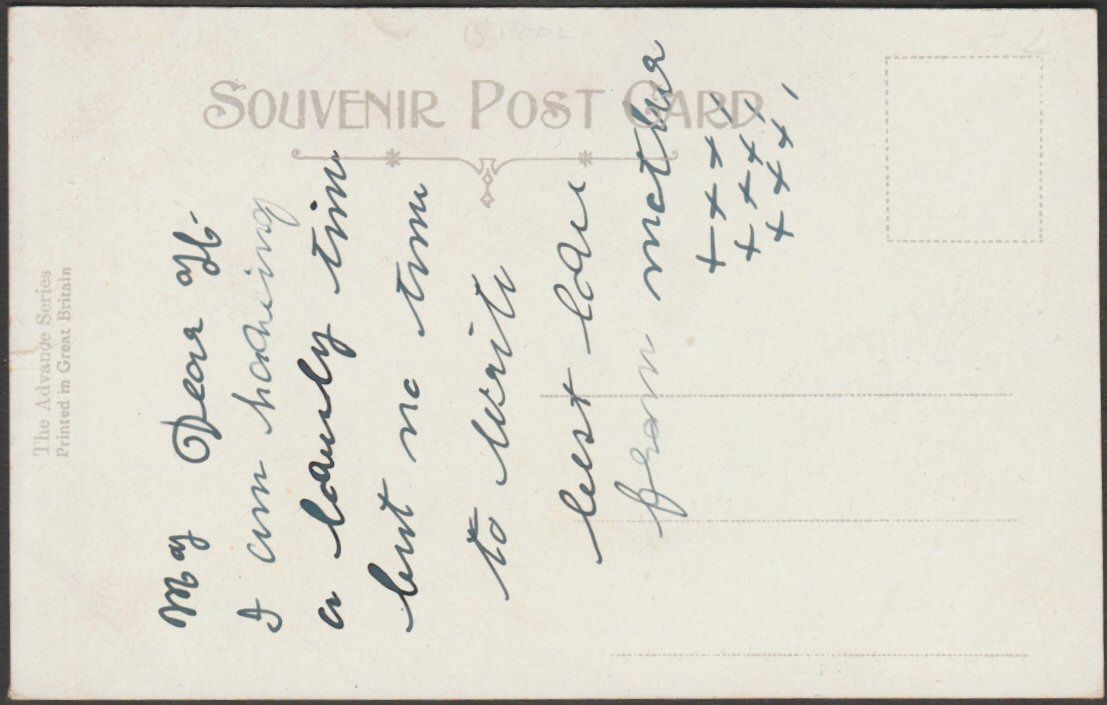 SOUVENIR POST CARD
The Advance Series
Printed in Great Britain
My Dear
I am having
a lovely time
but no time
to write
best love
from mother
+ + × ×
+ + × ×
+ × ×